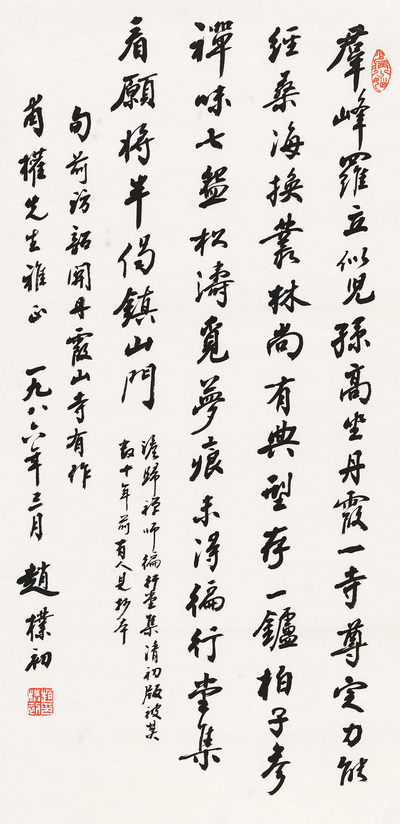 羣峰羅立似兒孫高坐丹霞一寺尊定力能
經桑海換叢林尚有典型存一鑪柏子參
禪味七盌松濤覓夢痕未得徧行堂集
看願將半偈鎮山門
澹歸禪師徧行堂集清初版被焚
數十年前有人見抄本
旬前訪韶關丹霞山寺有作
蒲權先生雅正 一九八六年三月 趙樸初